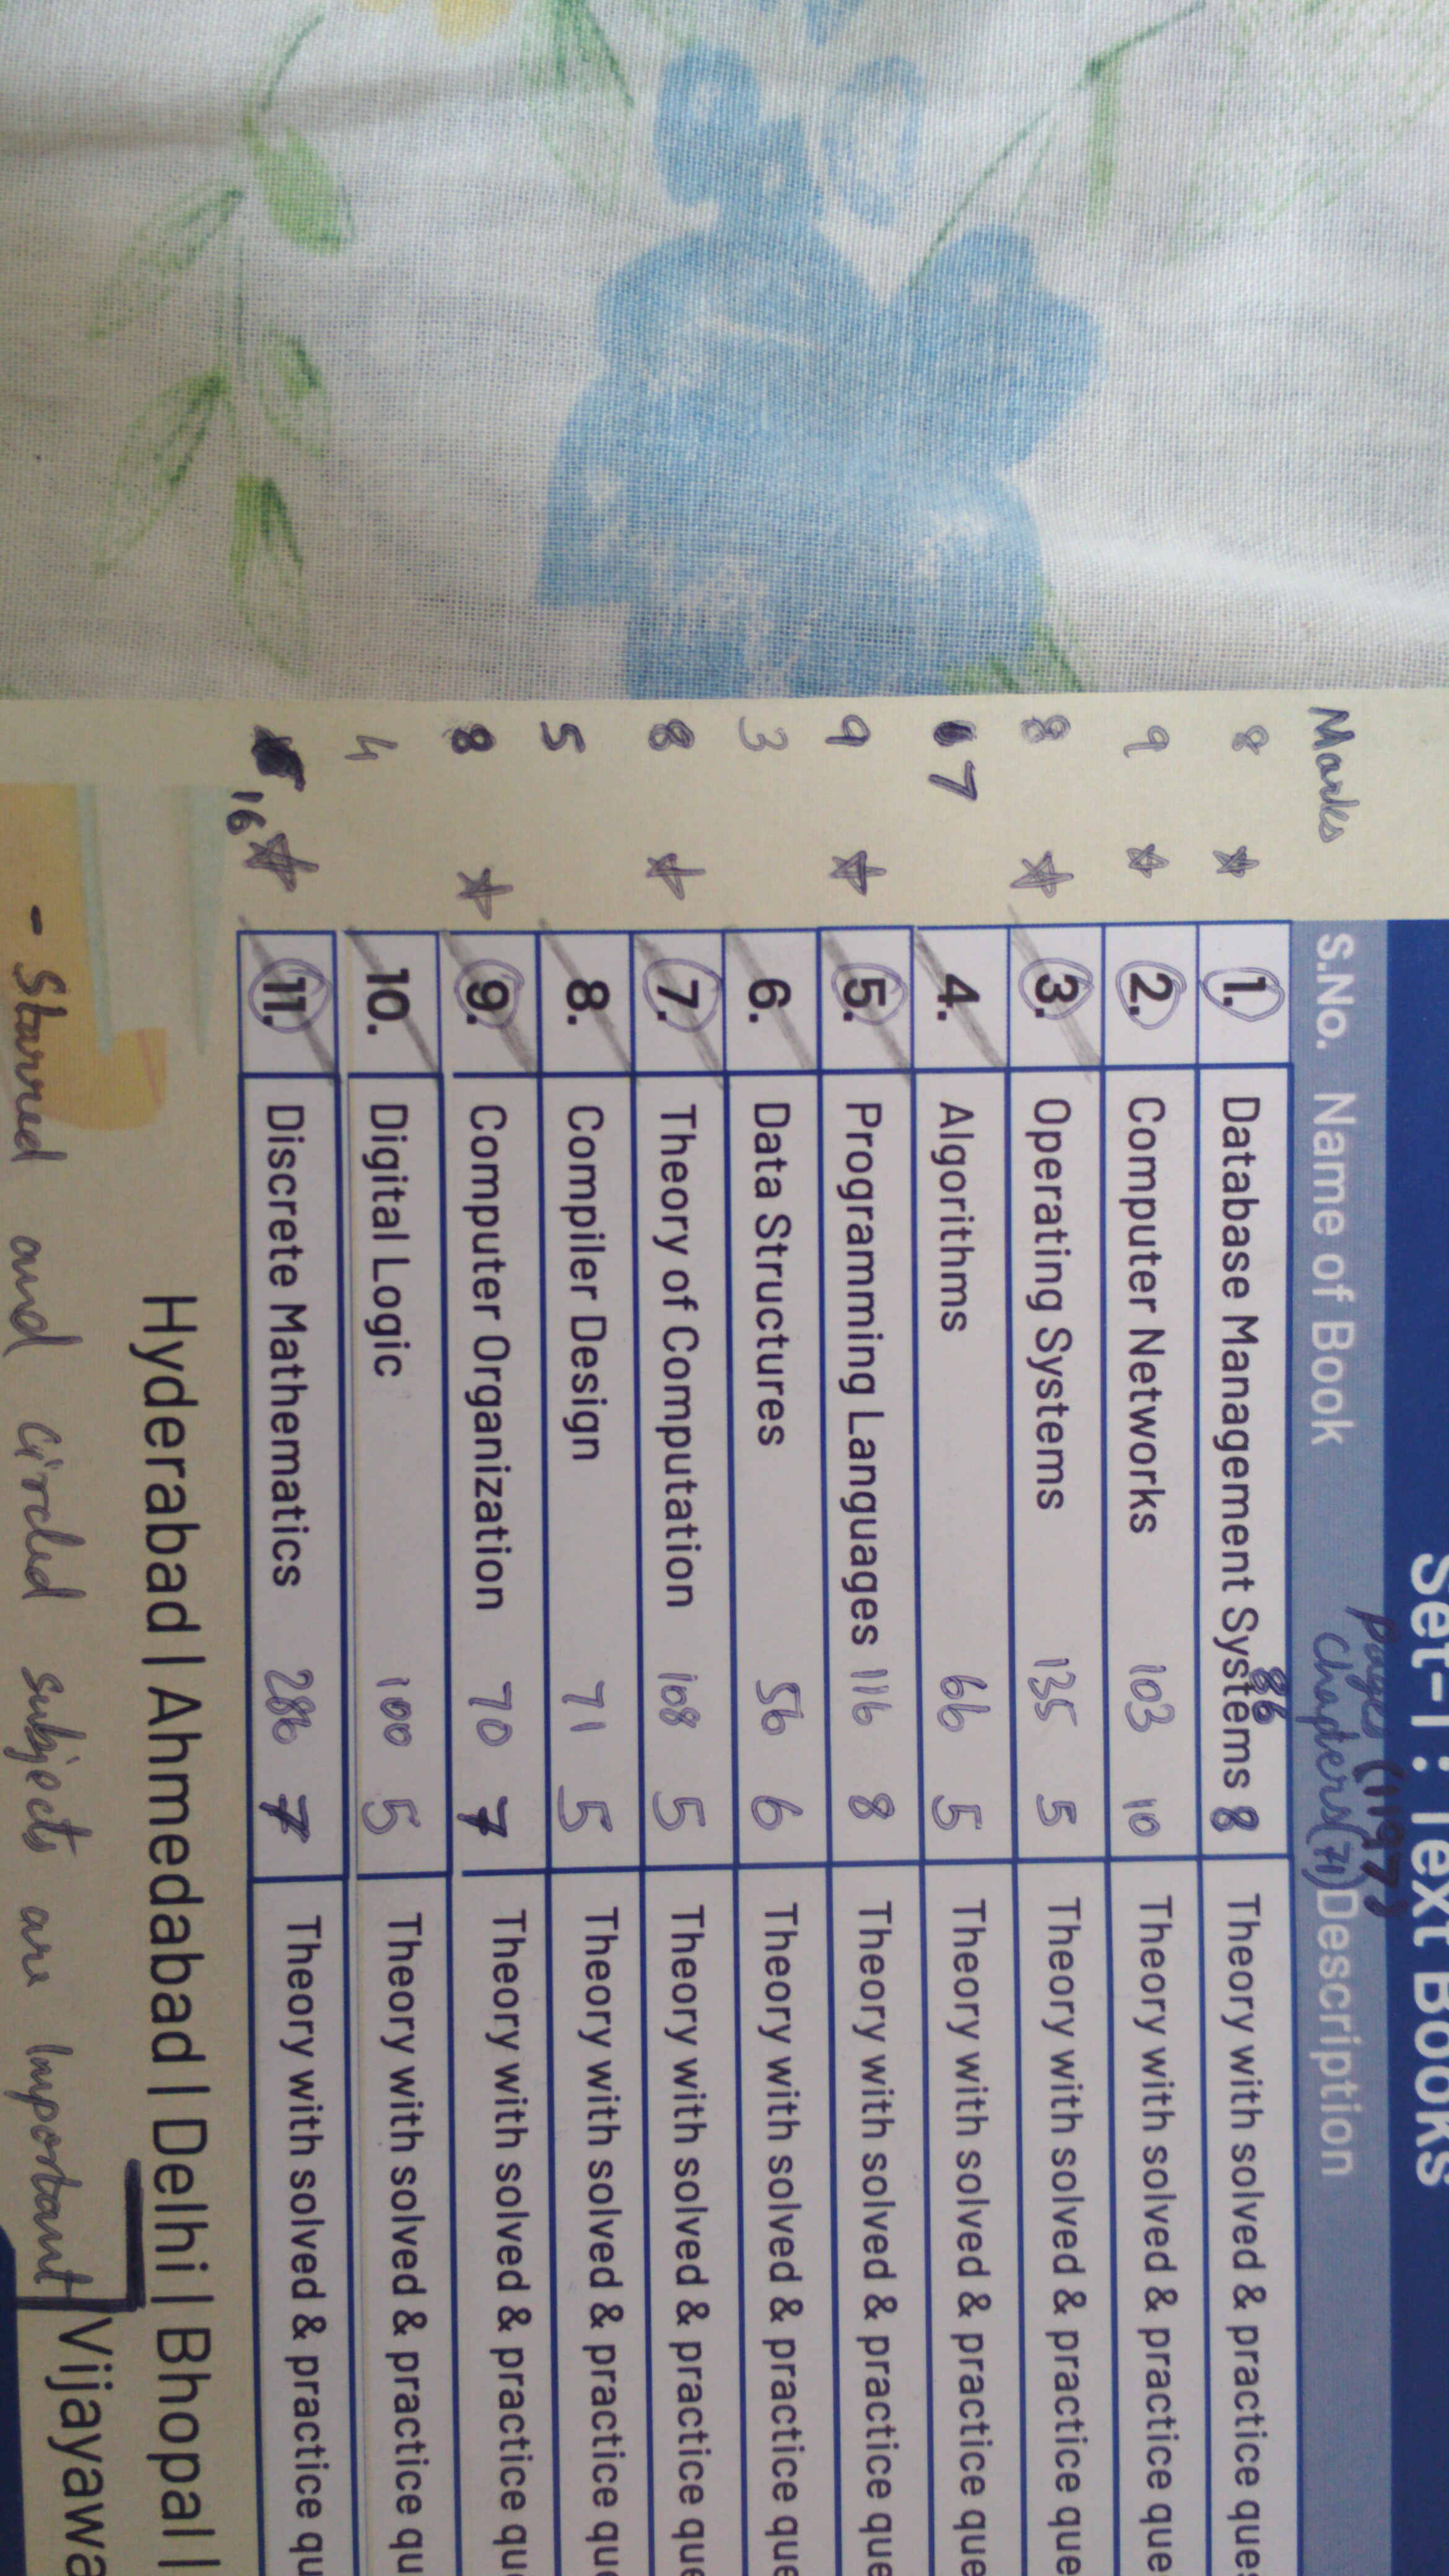 Set-I : Text Books
pages (1197)
Marks S.No. Name of Book chapters(71) Description
8 1. Database Management Systems 86 8 Theory with solved & practice ques
9 2. Computer Networks 103 10 Theory with solved & practice que
8 3. Operating Systems 135 5 Theory with solved & practice que
7 4. Algorithms 66 5 Theory with solved & practice que
9 5. Programming Languages 116 8 Theory with solved & practice que
3 6. Data Structures 56 6 Theory with solved & practice que
8 7. Theory of Computation 108 5 Theory with solved & practice que
5 8. Compiler Design 71 5 Theory with solved & practice que
8 9. Computer Organization 70 7 Theory with solved & practice que
4 10. Digital Logic 100 5 Theory with solved & practice qu
16 11. Discrete Mathematics 286 7 Theory with solved & practice qu
Hyderabad | Ahmedabad | Delhi | Bhopal |
Vijayawa
- Starred and circled subjects are Important